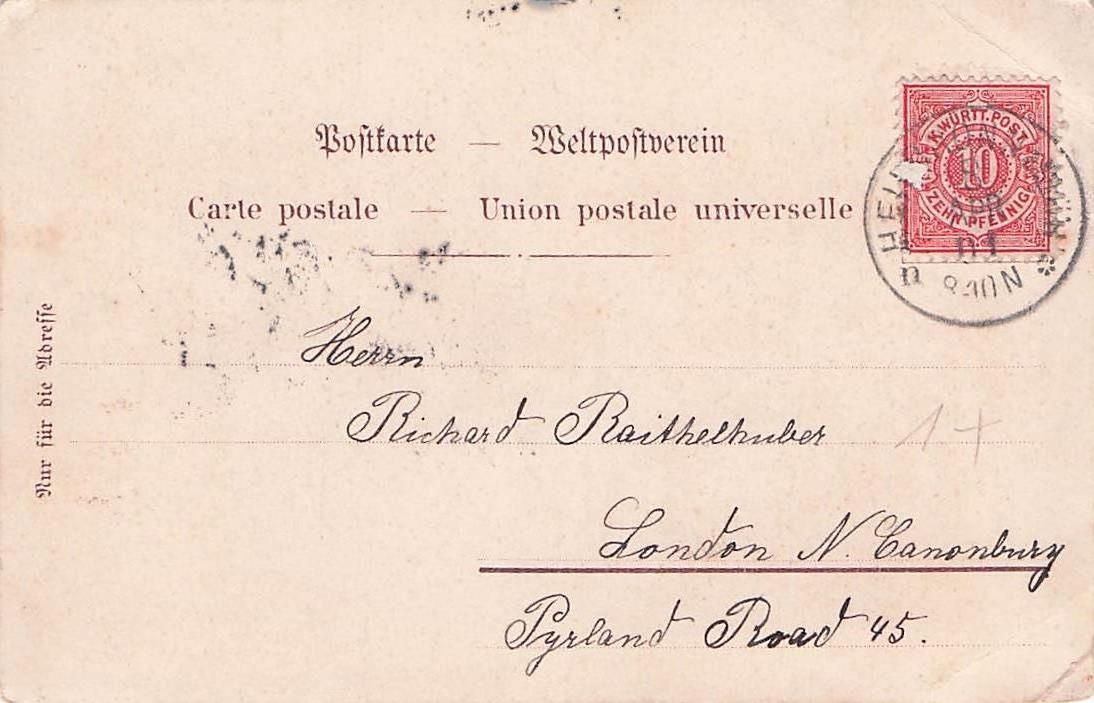 Postkarte — Weltpostverein
Carte postale — Union postale universelle
K. WÜRTT. POST
10
ZEHN PFENNIG
APR
01
8-10 N
Nur für die Adresse
Herrn
Richard Raithelhuber
1+
London N. Canonbury
Pyrland Road 45.